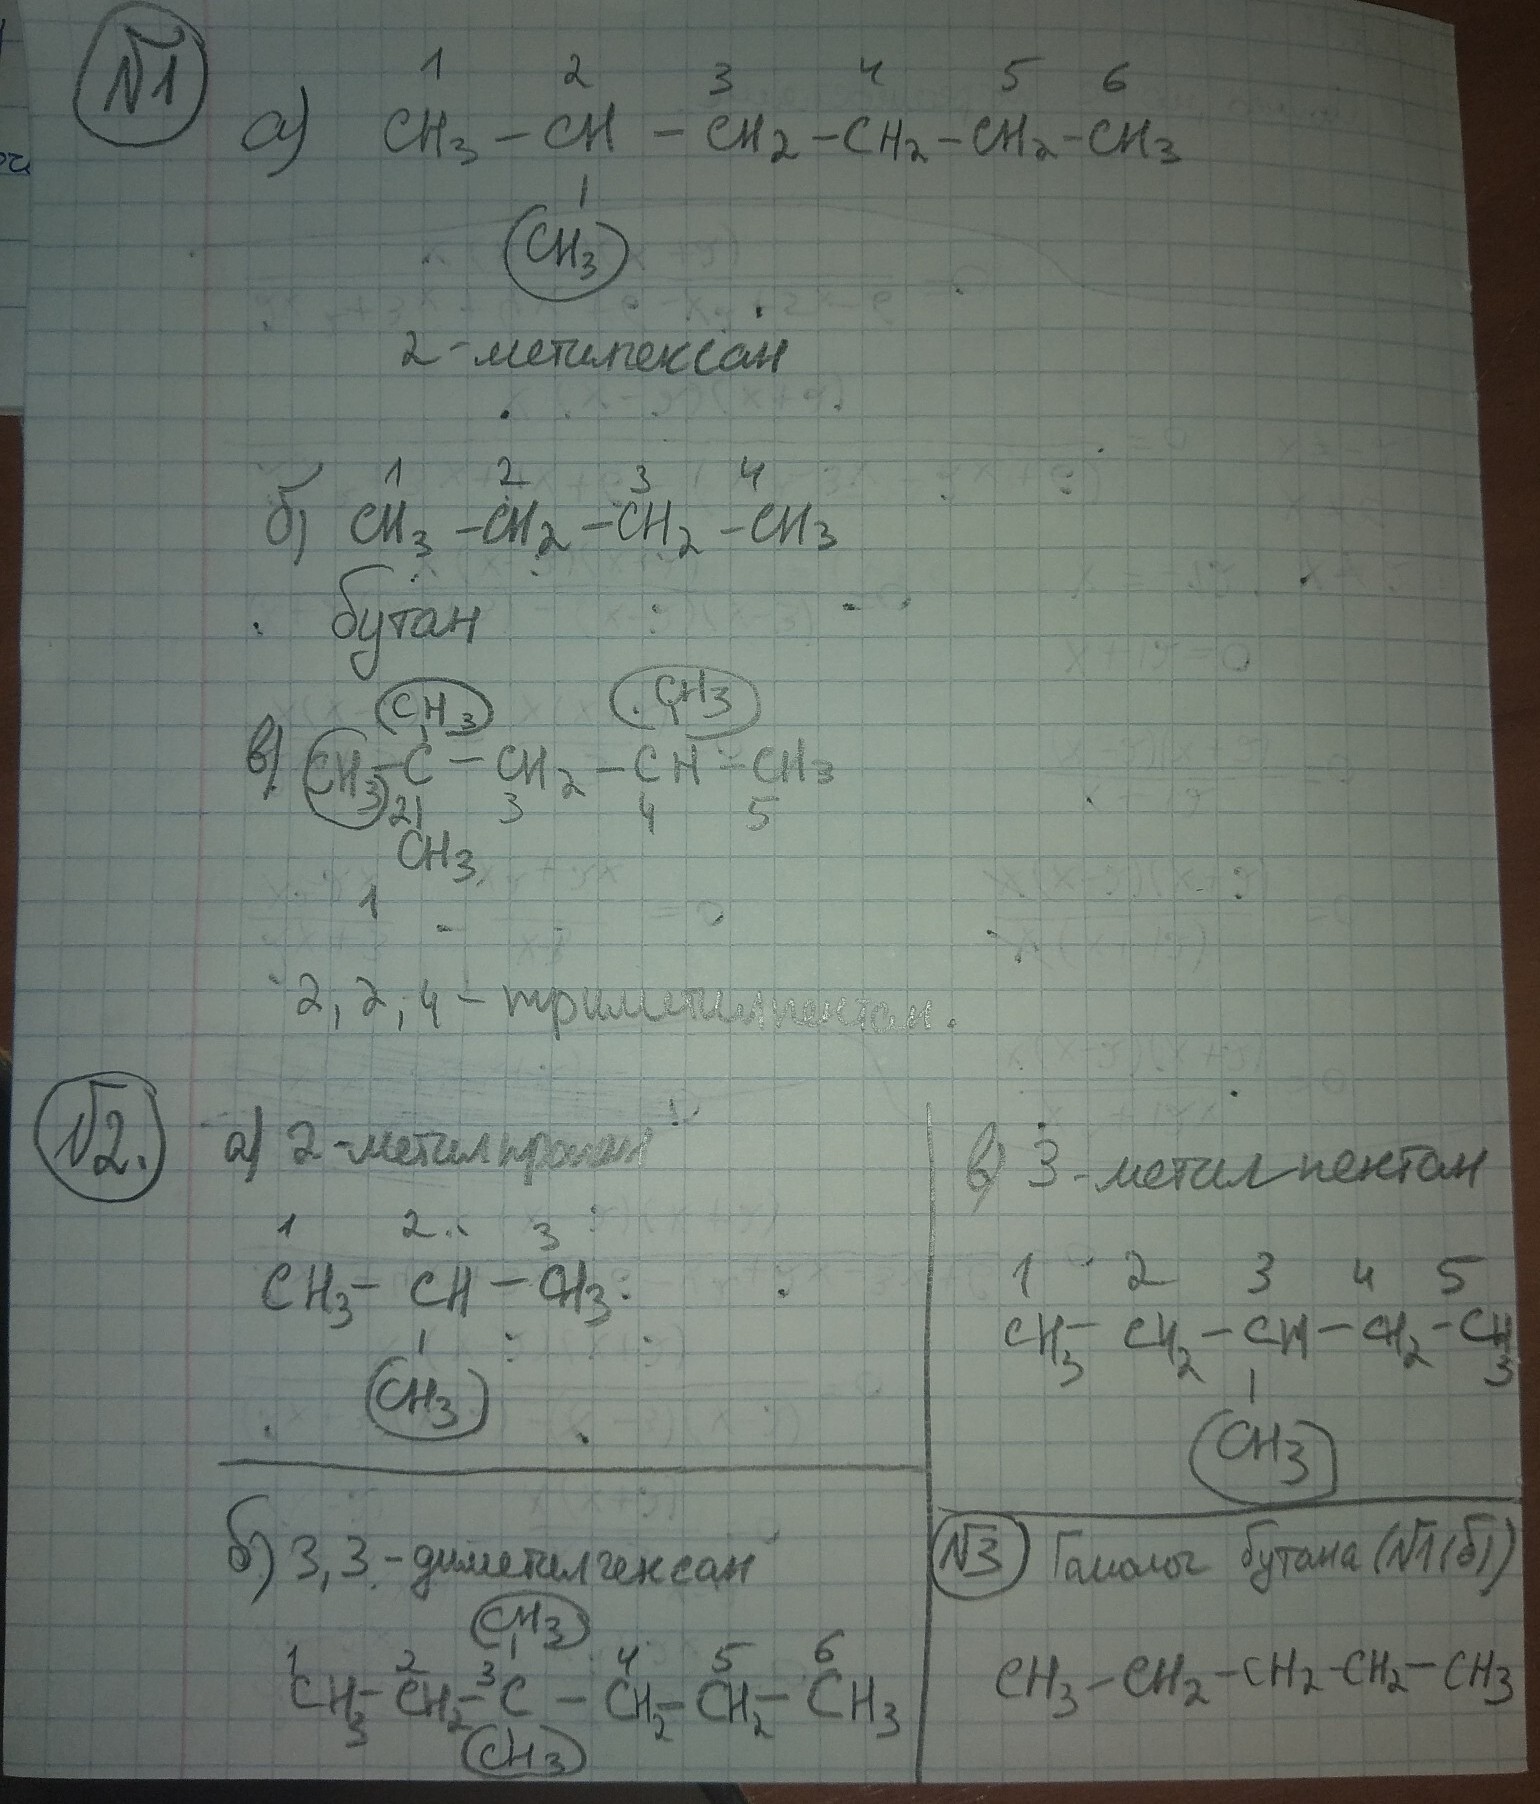 №1
1 2 3 4 5 6
а) CH3 – CH – CH2 – CH2 – CH2 – CH3
CH3
2-метилгексан
1 2 3 4
б) CH3 – CH2 – CH2 – CH3
бутан
CH3 CH3
в) CH3 – C – CH2 – CH – CH3
2 3 4 5
CH3
1
2,2,4 – триметилпентан.
№2.
а) 2-метилпропан
1 2 3
CH3 – CH – CH3
CH3
б) 3,3-диметилгексан
CH3
1 2 3 4 5 6
CH3 – CH2 – C – CH2 – CH2 – CH3
CH3
в) 3-метилпентан
1 2 3 4 5
CH3 – CH2 – CH – CH2 – CH3
CH3
№3 Гомолог бутана (№1(б))
CH3 – CH2 – CH2 – CH2 – CH3